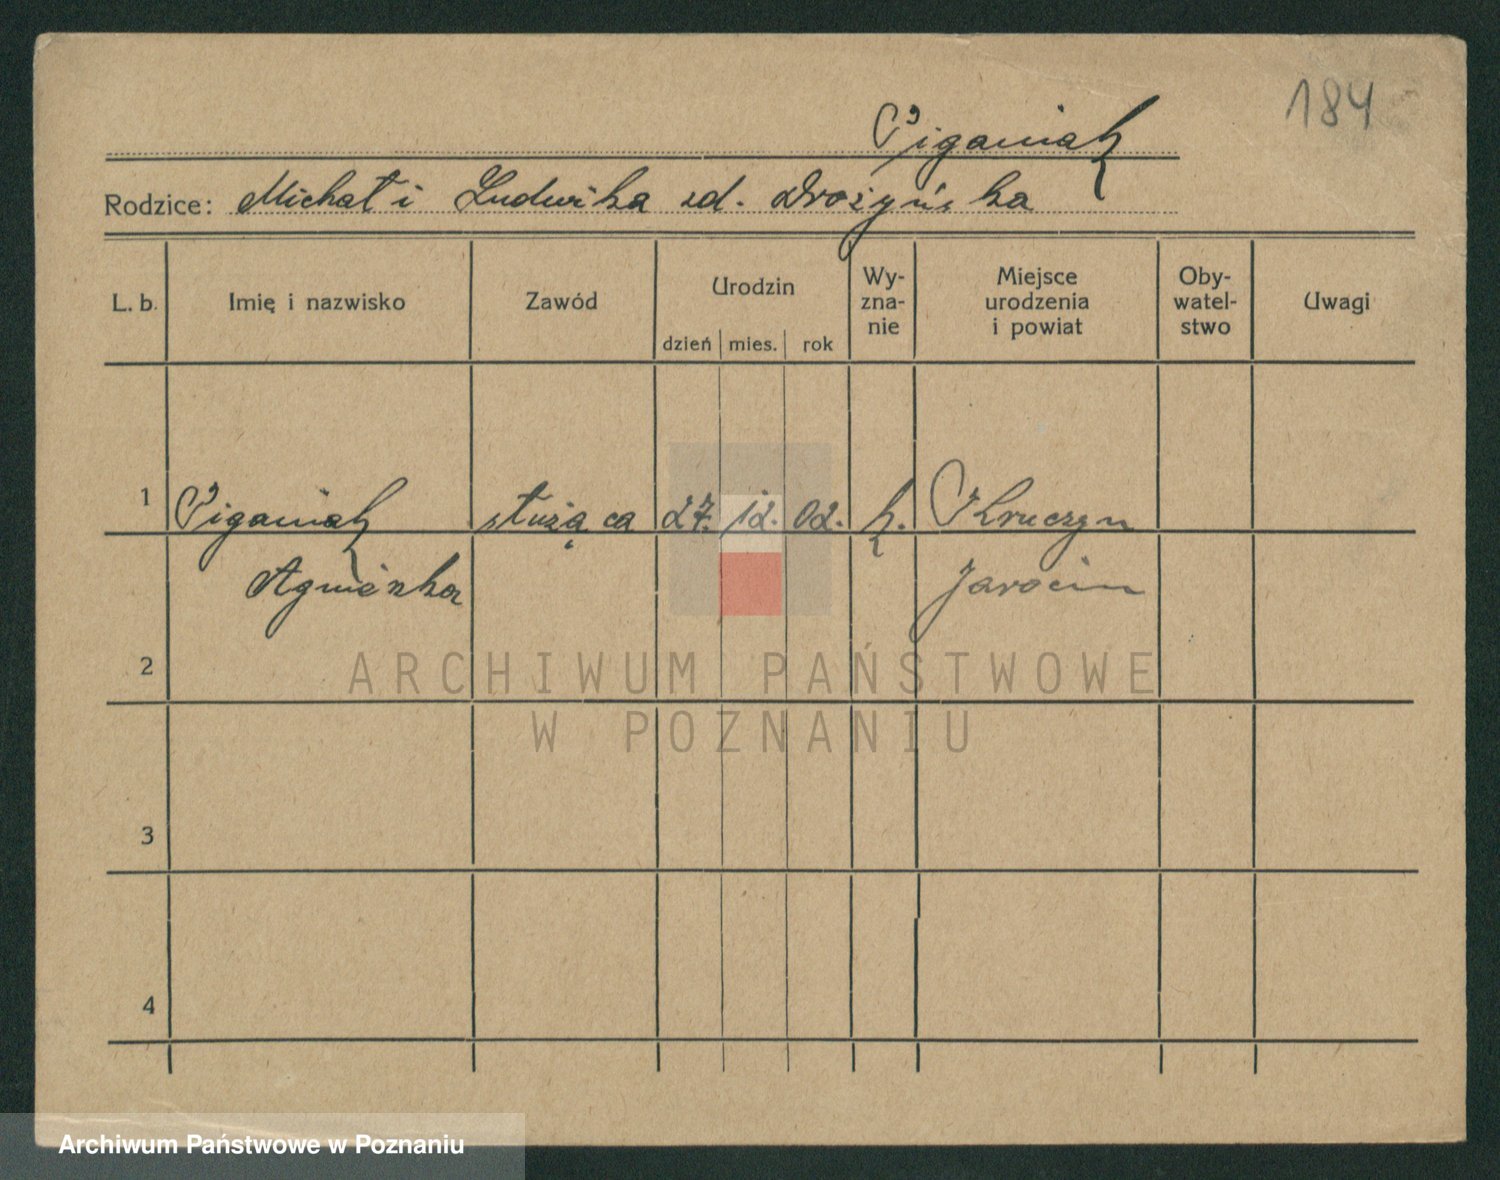 184
Piganiak
Rodzice: Michał i Ludwika zd. Drożyńska
L. b. Imię i nazwisko Zawód Urodzin dzień mies. rok Wy-zna-nie Miejsce urodzenia i powiat Oby-watel-stwo Uwagi
1 Piganiak służąca 27. 12. 02. k. Kruczyn
Agnieszka Jarocin
2
ARCHIWUM PAŃSTWOWE
W POZNANIU
3
4
Archiwum Państwowe w Poznaniu